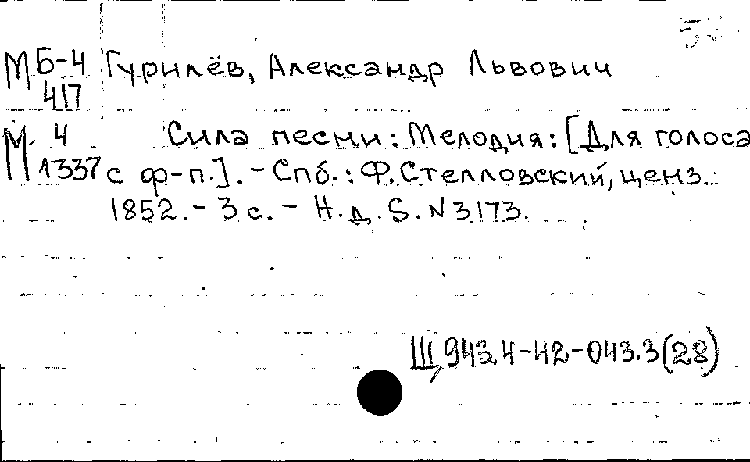 М Б-4 Гурилёв, Александр Львович
417
М 4 Сила песни: Мелодия: [Для голоса
1337 с ф-п.]. - Спб.: Ф. Стелловский, ценз.
1852. - 3 с. - Н. д. S. N 3173.
Щ 943.4-42-043.3(28)